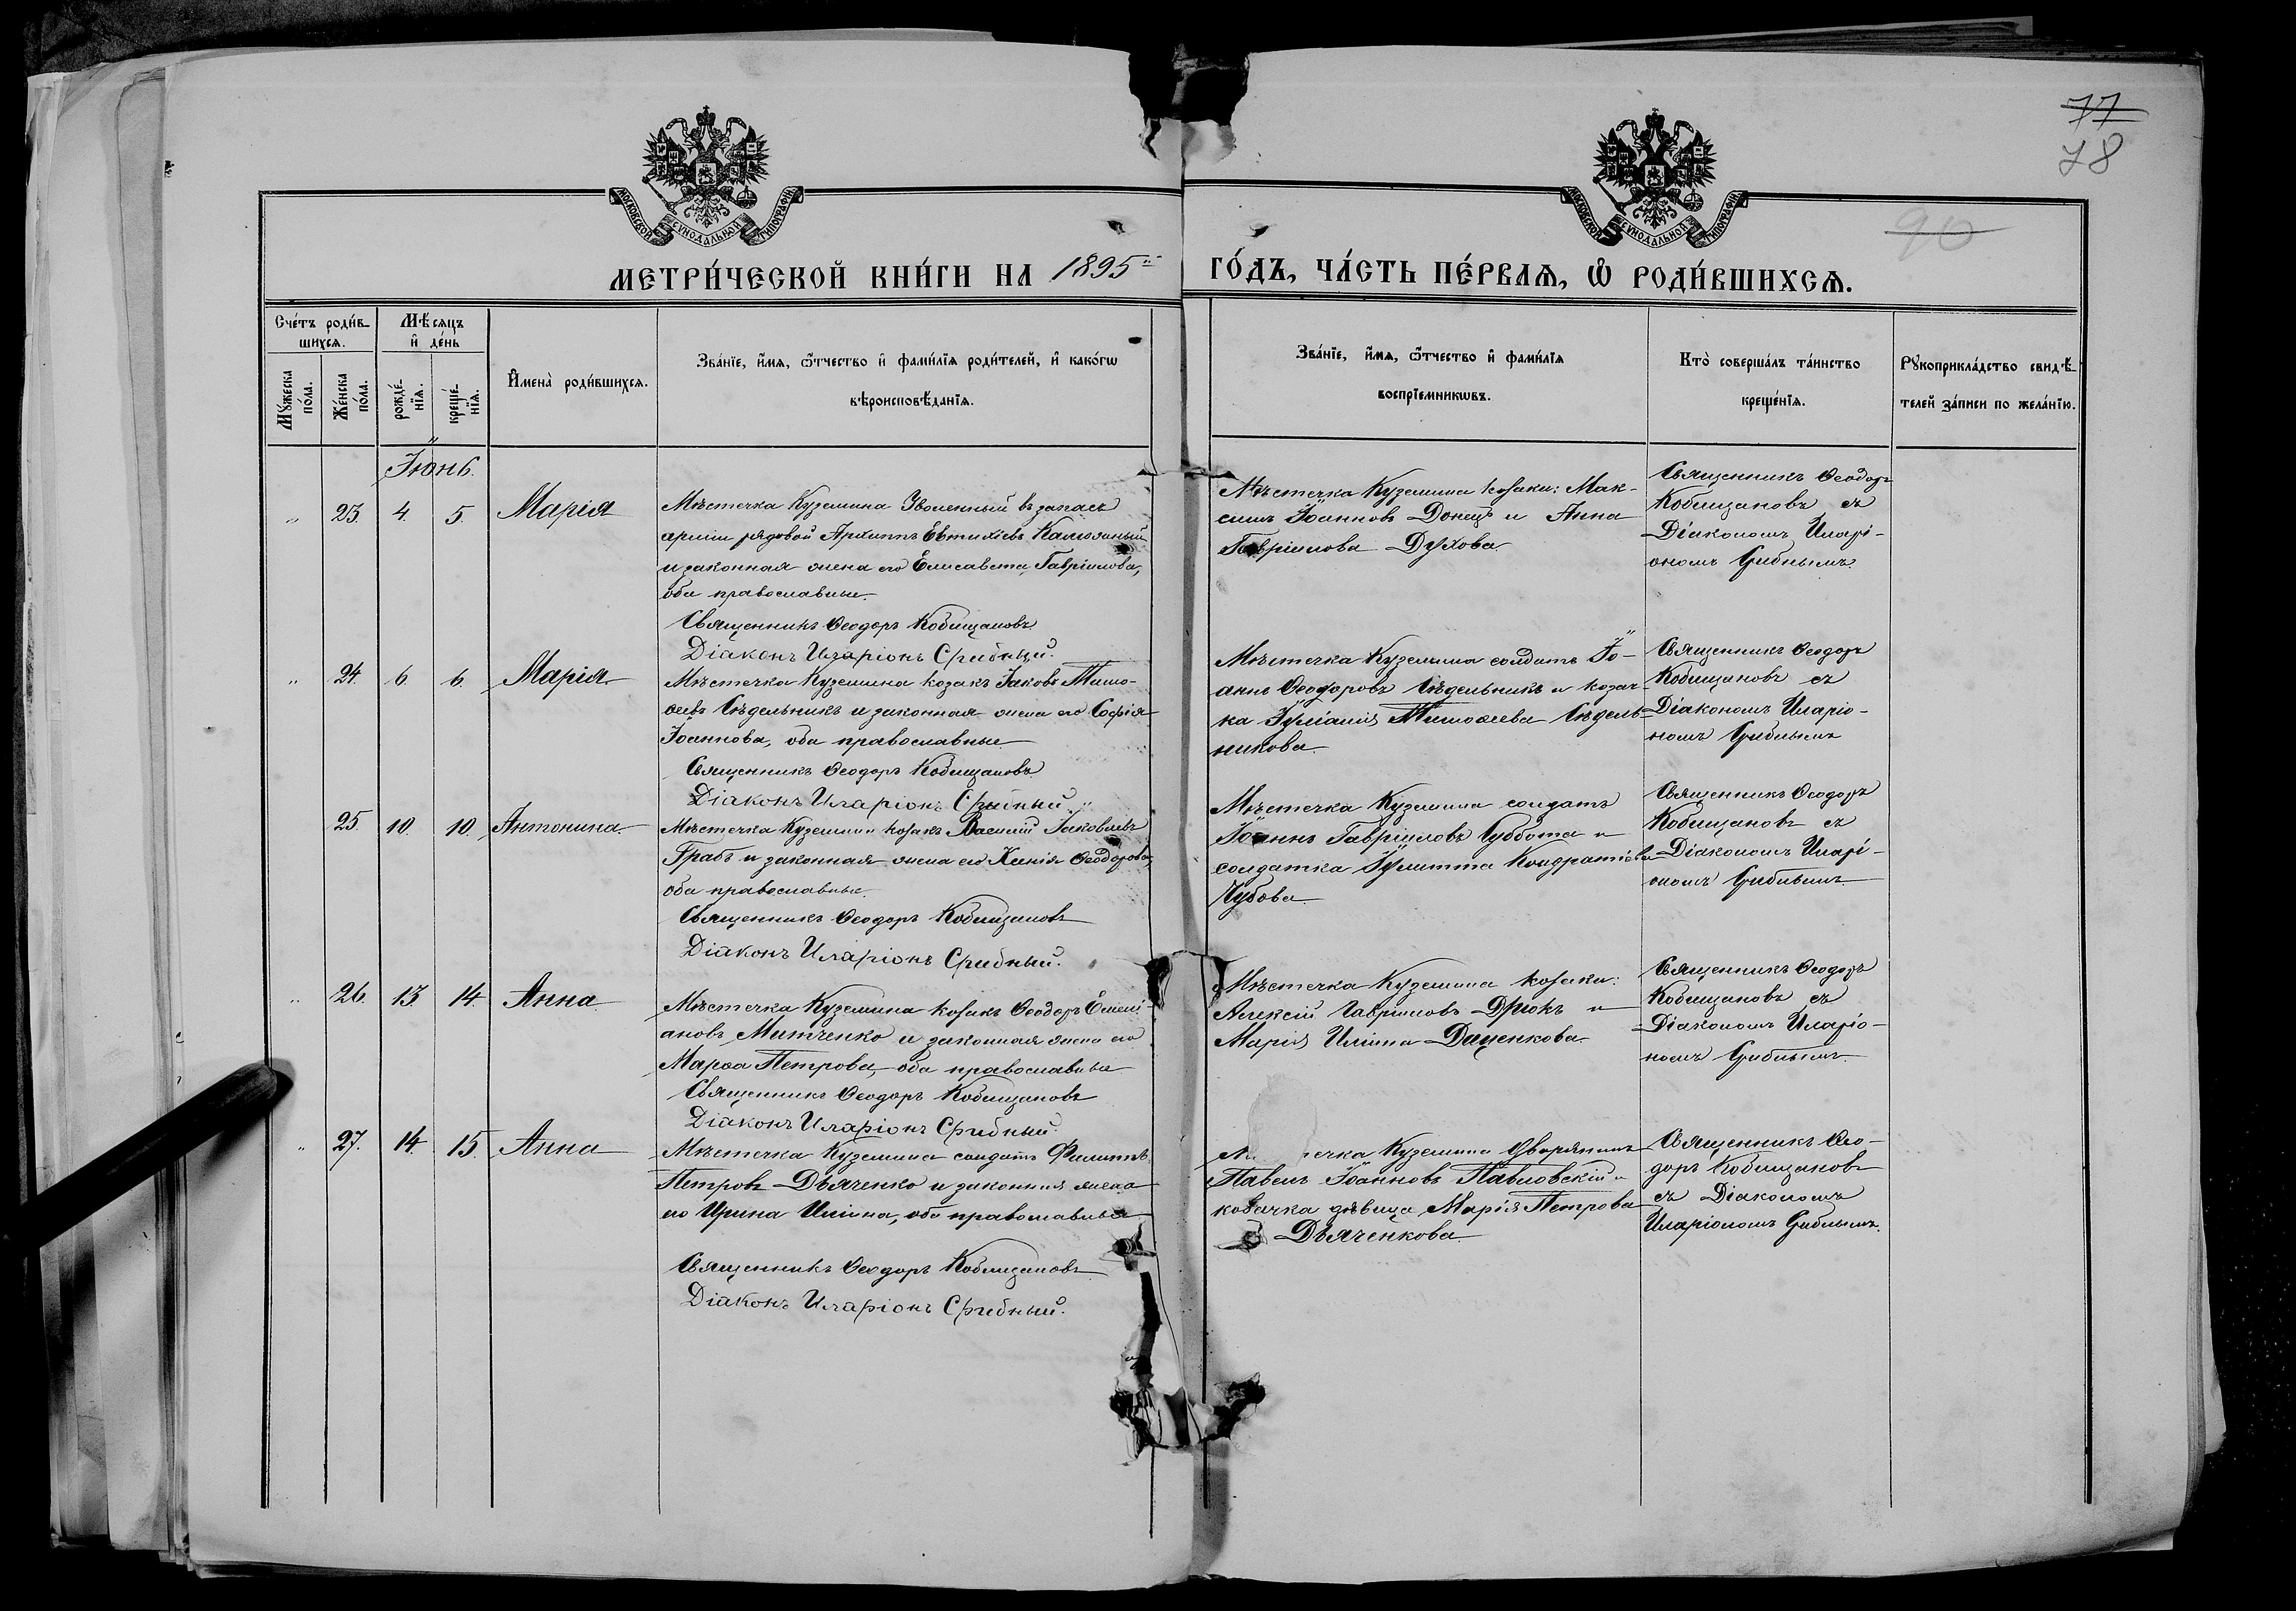 77
78
90
МОСКОВСКОЙ СѴНОДАЛЬНОЙ ТИПОГРАФІИ
МОСКОВСКОЙ СѴНОДАЛЬНОЙ ТИПОГРАФІИ
МЕТРИ́ЧЕСКОЙ КНИ́ГИ НА 1895 ГО́ДЪ, ЧА́СТЬ ПЕ́РВАѦ, Ѿ РОДИ́ВШИХСѦ.
Сче́тъ роди́в-
шихсѧ.
Мѣ́сѧцъ
и҆ де́нь
Мꙋ́жеска
по́ла.
Же́нска
по́ла.
рожде́-
нїѧ.
креще́-
нїѧ.
И҆мена̀ роди́вшихсѧ.
Зва́нїе, и҆́мѧ, ѻ҆́тчество и҆ фами́лїѧ роди́телей, и҆ како́гѡ
вѣроисповѣ́данїѧ.
Зва́нїе, и҆́мѧ, ѻ҆́тчество и҆ фами́лїѧ
воспрїе́мникѡвъ.
Кто̀ соверша́лъ та́инство
креще́нїѧ.
Рꙋкоприкла́дство свидѣ́-
телей за́писи по жела́нїю.
Іюнь.
„ 23. 4. 5. Марія
Мѣстечка Куземина Уволенный въ запасъ
арміи рядовой Архиппъ Евтихіевъ
и законная жена его Елисавета Гавріилова,
оба православные.
Священникъ Ѳеодоръ Кобищановъ
Діаконъ Иларіонъ Срибный.
Мѣстечка Куземина козаки: Мак-
симъ Іоанновъ Донецъ и Анна
Гавріилова Духова
Священникъ Ѳеодоръ
Кобищановъ съ
Діакономъ Иларі-
ономъ Срибнымъ.
„ 24. 6 6. Марія.
Мѣстечка Куземина козакъ Іаковъ Тимо-
ѳеевъ Сѣдельникъ и законная жена его Софія
Іоаннова, оба православные
Священникъ Ѳеодоръ Кобищановъ
Діаконъ Иларіонъ Срибный.
Мѣстечка Куземина солдатъ Іо-
аннъ Ѳеодоровъ Сѣдельникъ и козач-
ка Іуліанія Тимоѳеева Сѣдель-
никова
Священникъ Ѳеодоръ
Кобищановъ съ
Діакономъ Иларіо-
номъ Срибнымъ
25. 10. 10. Антонина.
Мѣстечка Куземина козакъ Василій Іаковлевъ
Грабъ и законная жена его Ксенія Ѳеодорова,
оба православные
Священникъ Ѳеодоръ Кобищановъ
Діаконъ Иларіонъ Срибный.
Мѣстечка Куземина солдатъ
Іоаннъ Гавріиловъ Суббота и
солдатка Іулитта Кондратіева
Чубова
Священникъ Ѳеодоръ
Кобищановъ съ
Діакономъ Иларі-
ономъ Срибнымъ
„ 26. 13. 14. Анна.
Мѣстечка Куземина козакъ Ѳеодоръ Емелі-
ановъ Митченко и законная жена его
Марѳа Петрова, оба православные
Священникъ Ѳеодоръ Кобищановъ
Діаконъ Иларіонъ Срибный.
Мѣстечка Куземина козаки:
Алексій Гавріиловъ Дрюкъ и
Марія Иліина Даценкова
Священникъ Ѳеодоръ
Кобищановъ съ
Діакономъ Иларіо-
номъ Срибнымъ.
„ 27. 14. 15. Анна
Мѣстечка Куземина солдатъ Филиппъ
Петровъ Дьяченко и законная жена
его Ирина Иліина, оба православные
Священникъ Ѳеодоръ Кобищановъ
Діаконъ Иларіонъ Срибный.
М ечка Куземина дворянинъ
Павелъ Іоанновъ Павловскій и
козачка дѣвица Марія Петрова
Дьяченкова
Священникъ Ѳео-
доръ Кобищановъ
съ Діакономъ
Иларіономъ Срибнымъ.